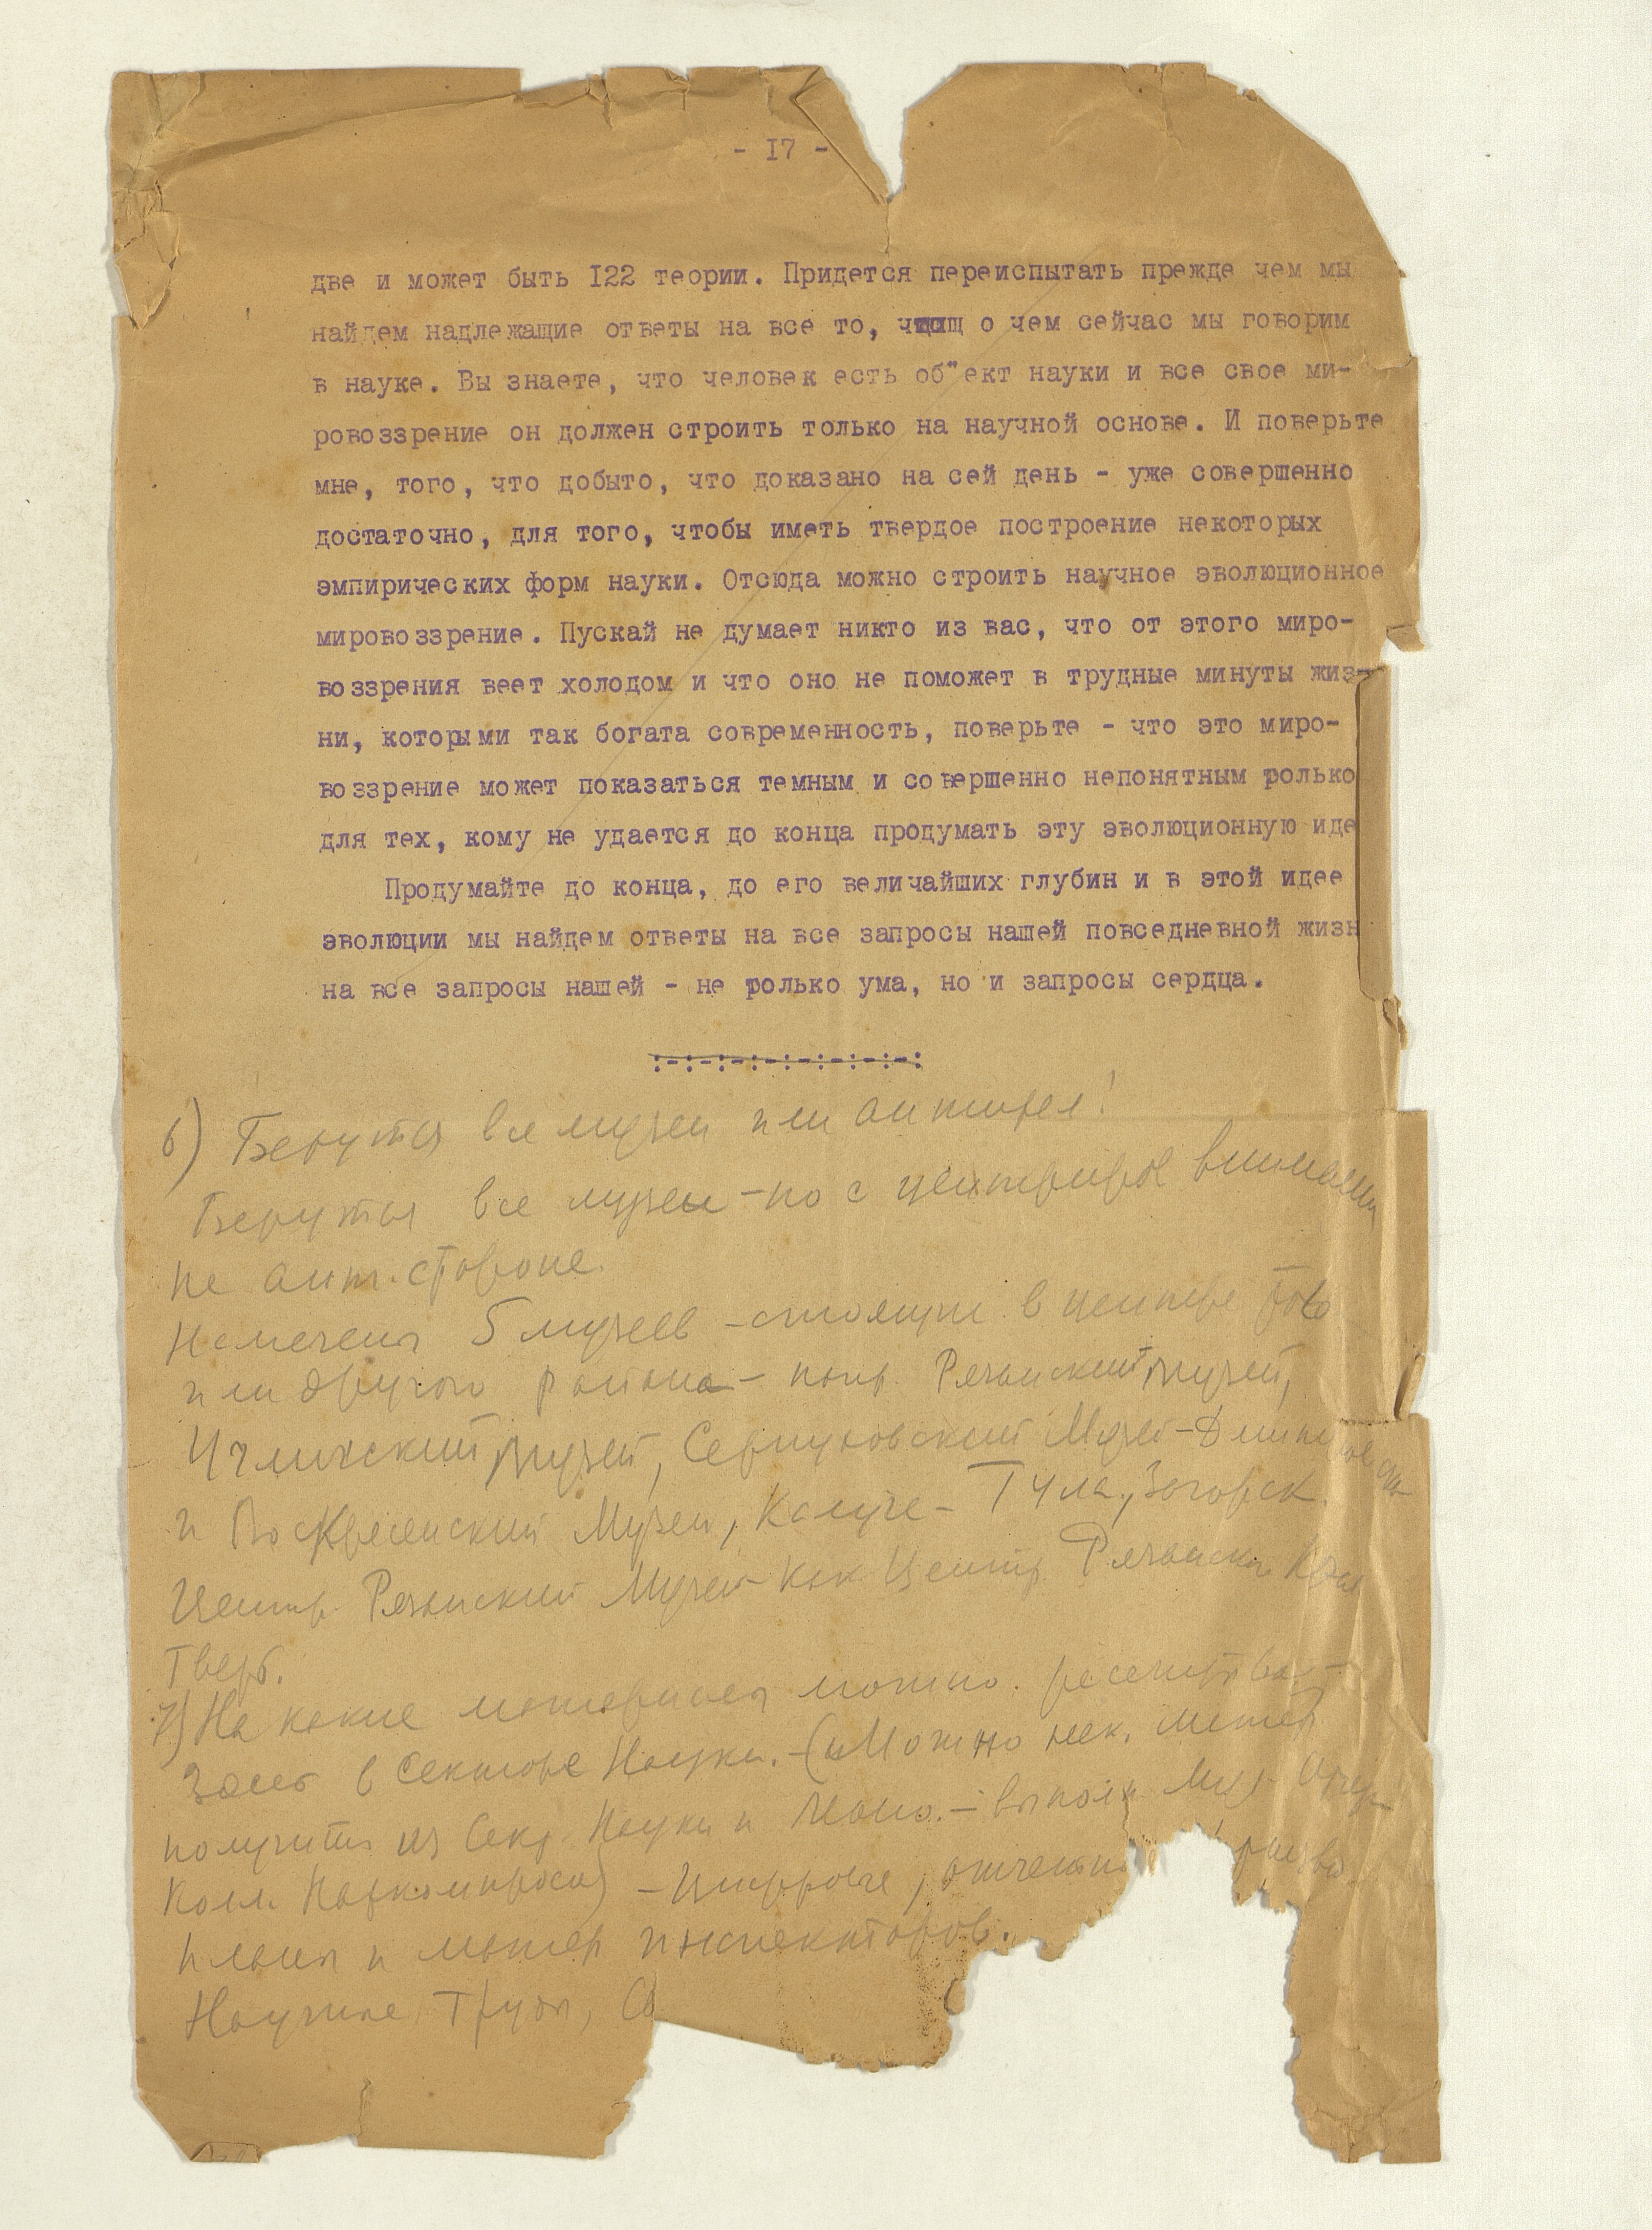 - I7 -
две и может быть I22 теории. Придется переиспытать прежде чем мы
найдем надлежащие ответы на все то, о чем сейчас мы говорим
в науке. Вы знаете, что человек есть об"ект науки и все свое ми-
ровоззрение он должен строить только на научной основе. И поверьте
мне, того, что добыто, что доказано на сей день - уже совершенно
достаточно, для того, чтобы иметь твердое построение некоторых
эмпирических форм науки. Отсюда можно строить научное эволюционное
мировоззрение. Пускай не думает никто из вас, что от этого миро-
воззрения веет холодом и что оно не поможет в трудные минуты жиз-
ни, которыми так богата современность, поверьте - что это миро-
воззрение может показаться темным и совершенно непонятным только
для тех, кому не удается до конца продумать эту эволюционную иде
Продумайте до конца, до его величайших глубин и в этой идее
эволюции мы найдем ответы на все запросы нашей повседневной жизн
на все запросы нашей - не только ума, но и запросы сердца.
:-:-:-:-:-:-:-:-:
6) Берутся все музеи или антирел!
Берутся все музеи - но с центриров внимания
на ант. стороне.
Намечены 5 музеев - стоящие в центре того
или другого района - напр. Рязанский музей,
Угличский музей, Серпуховский Музей - Дмитровск
и Воскресенский Музеи, Калуге - Тула, Загорск.
Центр. Рязанский Музей как Центр Рязанск. Края
Тверь.
7) На какие материалы можно. рассчитыва-
Здесь в Секторе Науки. - (Можно нек. матер
получить из Сек. Науки и - выполн Муз
Колл. Наркомпроса) - Цифровые, отчетн
планы и матер инспекторов.
Научные Труды, Со